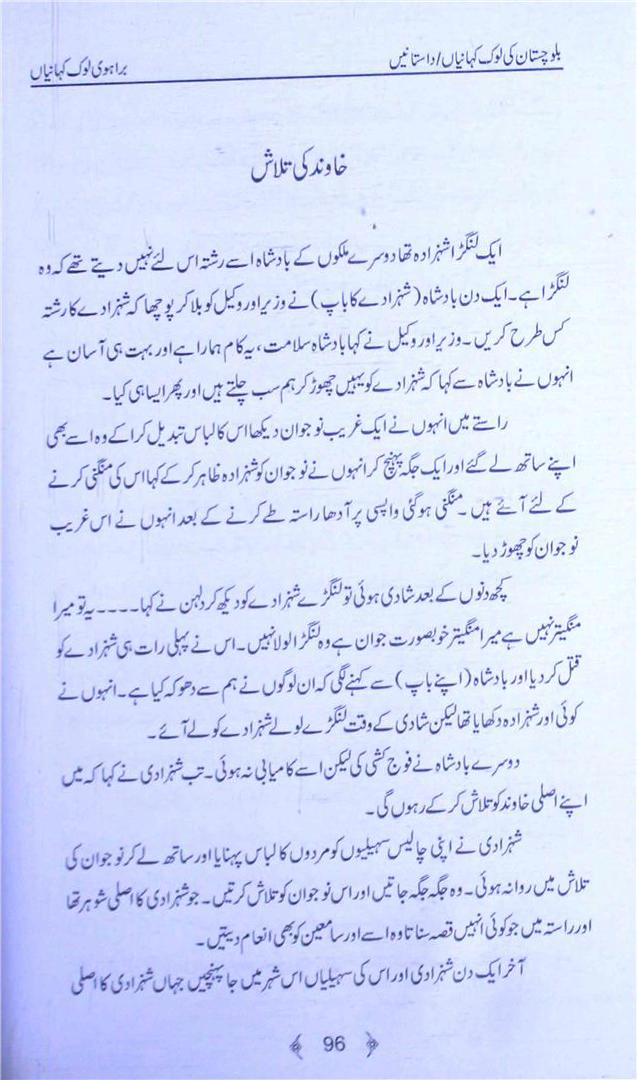 بلوچستان کی لوک کہانیاں/داستانیں
براہوی لوک کہانیاں
خاوند کی تلاش
ایک لنگڑا شہزادہ تھا دوسرے ملکوں کے بادشاہ اسے رشتہ اس لئے نہیں دیتے تھے کہ وہ
لنگڑا ہے۔ ایک دن بادشاہ (شہزادے کا باپ) نے وزیر اور وکیل کو بلا کر پوچھا کہ شہزادے کا رشتہ
کس طرح کریں۔ وزیر اور وکیل نے کہا بادشاہ سلامت، یہ کام ہمارا ہے اور بہت ہی آسان ہے
انہوں نے بادشاہ سے کہا کہ شہزادے کو یہیں چھوڑ کر ہم سب چلتے ہیں اور پھر ایسا ہی کیا۔
راستے میں انہوں نے ایک غریب نوجوان دیکھا اس کا لباس تبدیل کرا کے وہ اسے بھی
اپنے ساتھ لے گئے اور ایک جگہ پہنچ کر انہوں نے نوجوان کو شہزادہ ظاہر کر کے کہا اس کی منگنی کرنے
کے لئے آئے ہیں۔ منگنی ہوگئی واپسی پر آدھا راستہ طے کرنے کے بعد انہوں نے اس غریب
نوجوان کو چھوڑ دیا۔
کچھ دنوں کے بعد شادی ہوئی تو لنگڑے شہزادے کو دیکھ کر دلہن نے کہا ۔۔۔۔ یہ تو میرا
منگیتر نہیں ہے میرا منگیتر خوبصورت جوان ہے وہ لنگڑا لولا نہیں۔ اس نے پہلی رات ہی شہزادے کو
قتل کر دیا اور بادشاہ (اپنے باپ) سے کہنے لگی کہ ان لوگوں نے ہم سے دھوکہ کیا ہے۔ انہوں نے
کوئی اور شہزادہ دکھایا تھا لیکن شادی کے وقت لنگڑے لولے شہزادے کو لے آئے۔
دوسرے بادشاہ نے فوج کشی کی لیکن اسے کامیابی نہ ہوئی۔ تب شہزادی نے کہا کہ میں
اپنے اصلی خاوند کو تلاش کر کے رہوں گی۔
شہزادی نے اپنی چالیس سہیلیوں کو مردوں کا لباس پہنایا اور ساتھ لے کر نوجوان کی
تلاش میں روانہ ہوئی۔ وہ جگہ جگہ جاتیں اور اس نوجوان کو تلاش کرتیں۔ جو شہزادی کا اصلی شوہر تھا
اور راستہ میں جو کوئی انہیں قصہ سناتا وہ اسے اور سامعین کو بھی انعام دیتیں۔
آخر ایک دن شہزادی اور اس کی سہیلیاں اس شہر میں جا پہنچیں جہاں شہزادی کا اصلی
96